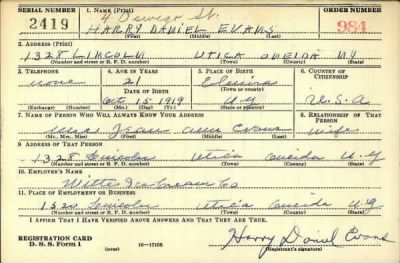 SERIAL NUMBER 1. NAME (Print) 4 Oswego St. ORDER NUMBER
2419 HARRY DANIEL EVANS 984
(First) (Middle) (Last)
2. ADDRESS (Print)
1328 LINCOLN UTICA ONEIDA NY
(Number and street or R. F. D. number) (Town) (County) (State)
3. TELEPHONE 4. AGE IN YEARS 5. PLACE OF BIRTH 6. COUNTRY OF CITIZENSHIP
none 21 Elmira
DATE OF BIRTH (Town or county)
Oct 15 1919 N.Y U.S.A
(Exchange) (Number) (Mo.) (Day) (Yr.) (State or country)
7. NAME OF PERSON WHO WILL ALWAYS KNOW YOUR ADDRESS 8. RELATIONSHIP OF THAT PERSON
Mrs Jean Ann Evans wife
(Mr., Mrs., Miss) (First) (Middle) (Last)
9. ADDRESS OF THAT PERSON
1328 Lincoln Utica Oneida N.Y
(Number and street or R. F. D. number) (Town) (County) (State)
10. EMPLOYER'S NAME
Ice Cream Co
11. PLACE OF EMPLOYMENT OR BUSINESS
Lincoln Utica Oneida N.Y
(Number and street or R. F. D. number) (Town) (County) (State)
I AFFIRM THAT I HAVE VERIFIED ABOVE ANSWERS AND THAT THEY ARE TRUE.
REGISTRATION CARD
D. S. S. Form 1 (over) 16—17105 Harry Daniel Evans
(Registrant's signature)